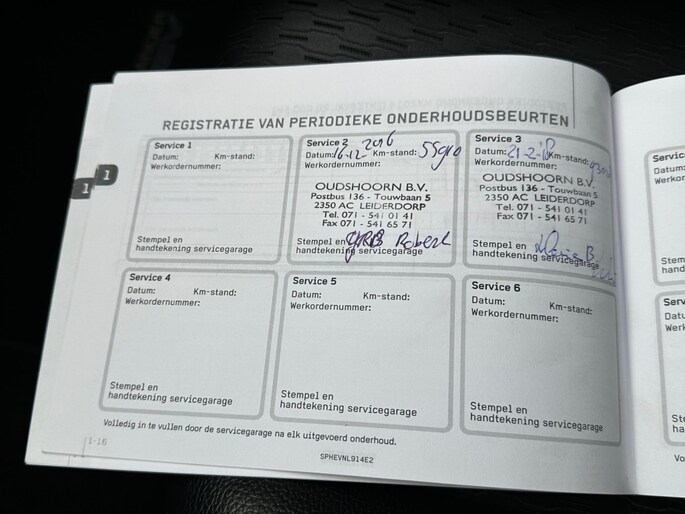 REGISTRATIE VAN PERIODIEKE ONDERHOUDSBEURTEN
1
1
Service 1
Datum: Km-stand:
Werkordernummer:
Stempel en
handtekening servicegarage
Service 2
Datum: 16-12-2016 Km-stand:
Werkordernummer:
OUDSHOORN B.V.
Postbus 136 - Touwbaan 5
2350 AC LEIDERDORP
Tel. 071 - 541 01 41
Fax 071 - 541 65 71
Stempel en Robert
handtekening servicegarage
Service 3
Datum: 21-2-18 Km-stand:
Werkordernummer:
OUDSHOORN B.V.
Postbus 136 - Touwbaan 5
2350 AC LEIDERDORP
Tel. 071 - 541 01 41
Fax 071 - 541 65 71
Stempel en
handtekening servicegarage
Service 4
Datum: Km-stand:
Werkordernummer:
Stempel en
handtekening servicegarage
Service 5
Datum: Km-stand:
Werkordernummer:
Stempel en
handtekening servicegarage
Service 6
Datum: Km-stand:
Werkordernummer:
Stempel en
handtekening servicegarage
Volledig in te vullen door de servicegarage na elk uitgevoerd onderhoud.
1-16
SPHEVNL914E2